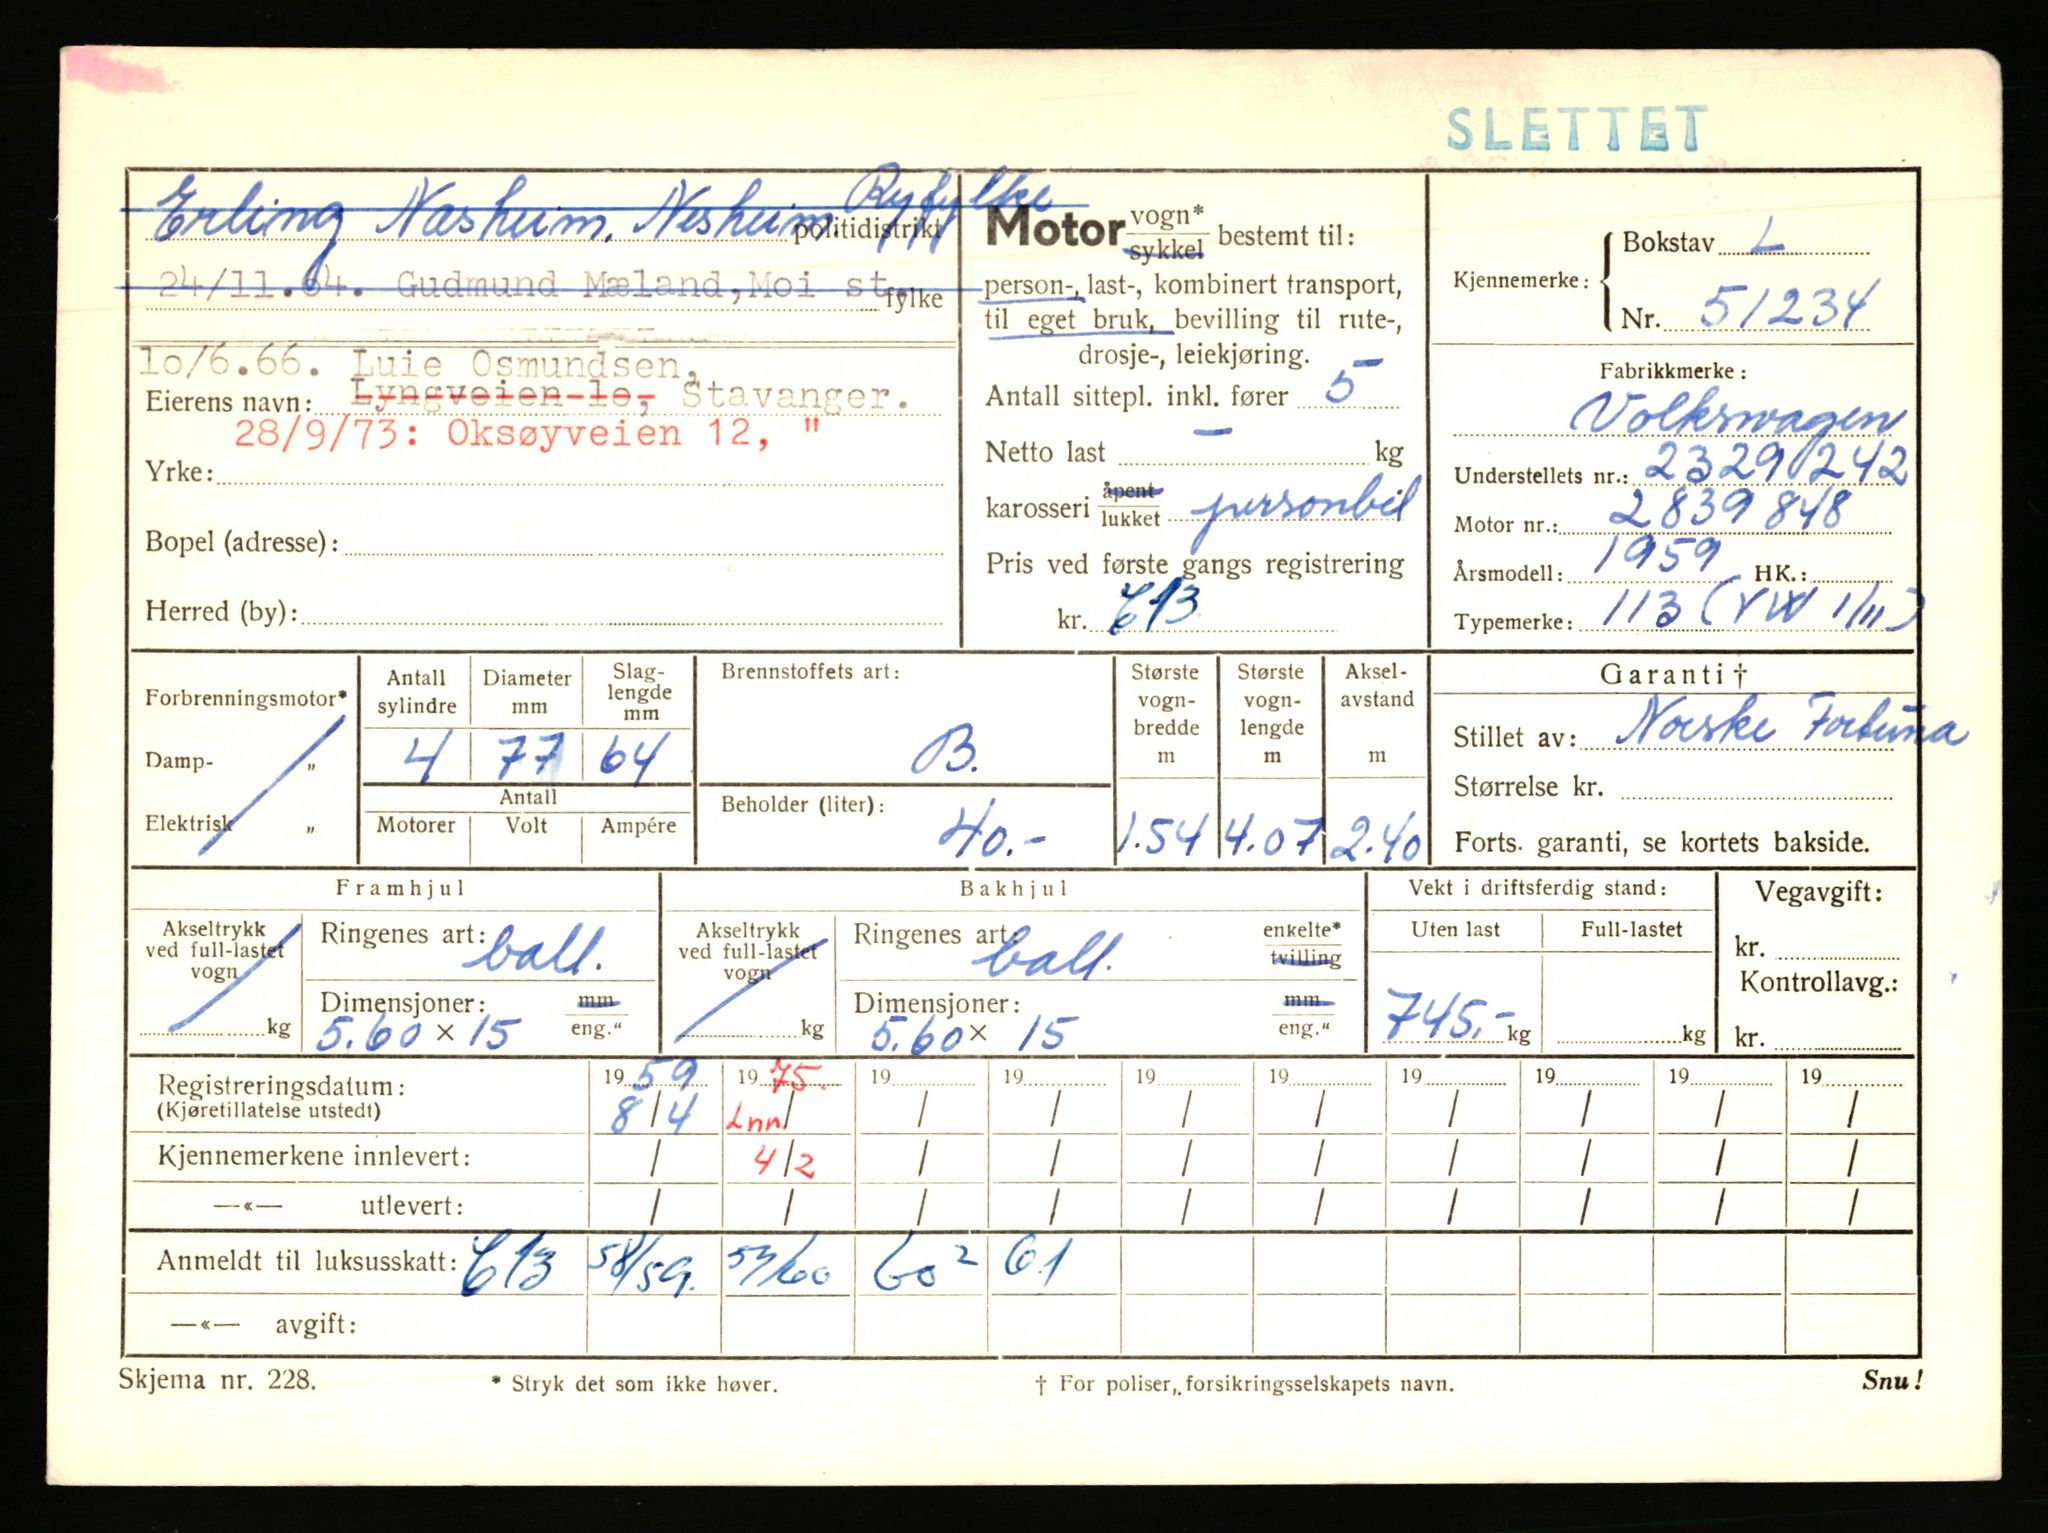 SLETTET
Erling Næsheim, Nesheim. Ryfylke
politidistrikt
24/11.64. Gudmund Mæland, Moi st.
fylke
10/6.66. Luie Osmundsen,
Eierens navn: Lyngveien 10, Stavanger.
28/9/73: Oksøyveien 12, "
Yrke:
Bopel (adresse):
Herred (by):
Motor vogn* sykkel bestemt til:
person-, last-, kombinert transport,
til eget bruk, bevilling til rute-,
drosje-, leiekjøring.
Antall sittepl. inkl. fører 5
Netto last — kg
karosseri åpent lukket personbil
Pris ved første gangs registrering
kr. C13
Kjennemerke: Bokstav L
Nr. 51234
Fabrikkmerke:
Volkswagen
Understellets nr.: 2329242
Motor nr.: 2839848
Årsmodell: 1959 HK.:
Typemerke: 113 (VW 1/11)
Forbrenningsmotor*
Damp- "
Elektrisk "
Antall sylindre
4
Diameter mm
77
Slag-lengde mm
64
Antall
Motorer Volt Ampére
Brennstoffets art:
B.
Beholder (liter):
40.-
Største vogn-bredde m
1.54
Største vogn-lengde m
4.07
Aksel-avstand m
2.40
Garanti †
Stillet av: Norske Fortuna
Størrelse kr.
Forts. garanti, se kortets bakside.
Framhjul
Akseltrykk ved full-lastet vogn
kg
Ringenes art: ball.
Dimensjoner: mm
5.60 × 15 eng."
Bakhjul
Akseltrykk ved full-lastet vogn
kg
Ringenes art: ball. enkelte* tvilling
Dimensjoner: mm
5.60 × 15 eng."
Vekt i driftsferdig stand:
Uten last Full-lastet
745,- kg kg
Vegavgift:
kr.
Kontrollavg.:
kr.
Registreringsdatum: 1959 1975. 19 19 19 19 19 19 19 19
(Kjøretillatelse utstedt) 8/4 Inn/ / / / / / / / /
Kjennemerkene innlevert: / 4/2 / / / / / / / /
—«— utlevert: / / / / / / / / / /
Anmeldt til luksusskatt: C13 58/59. 59/60 60² 61
—«— avgift:
Skjema nr. 228. * Stryk det som ikke høver. † For poliser, forsikringsselskapets navn. Snu!